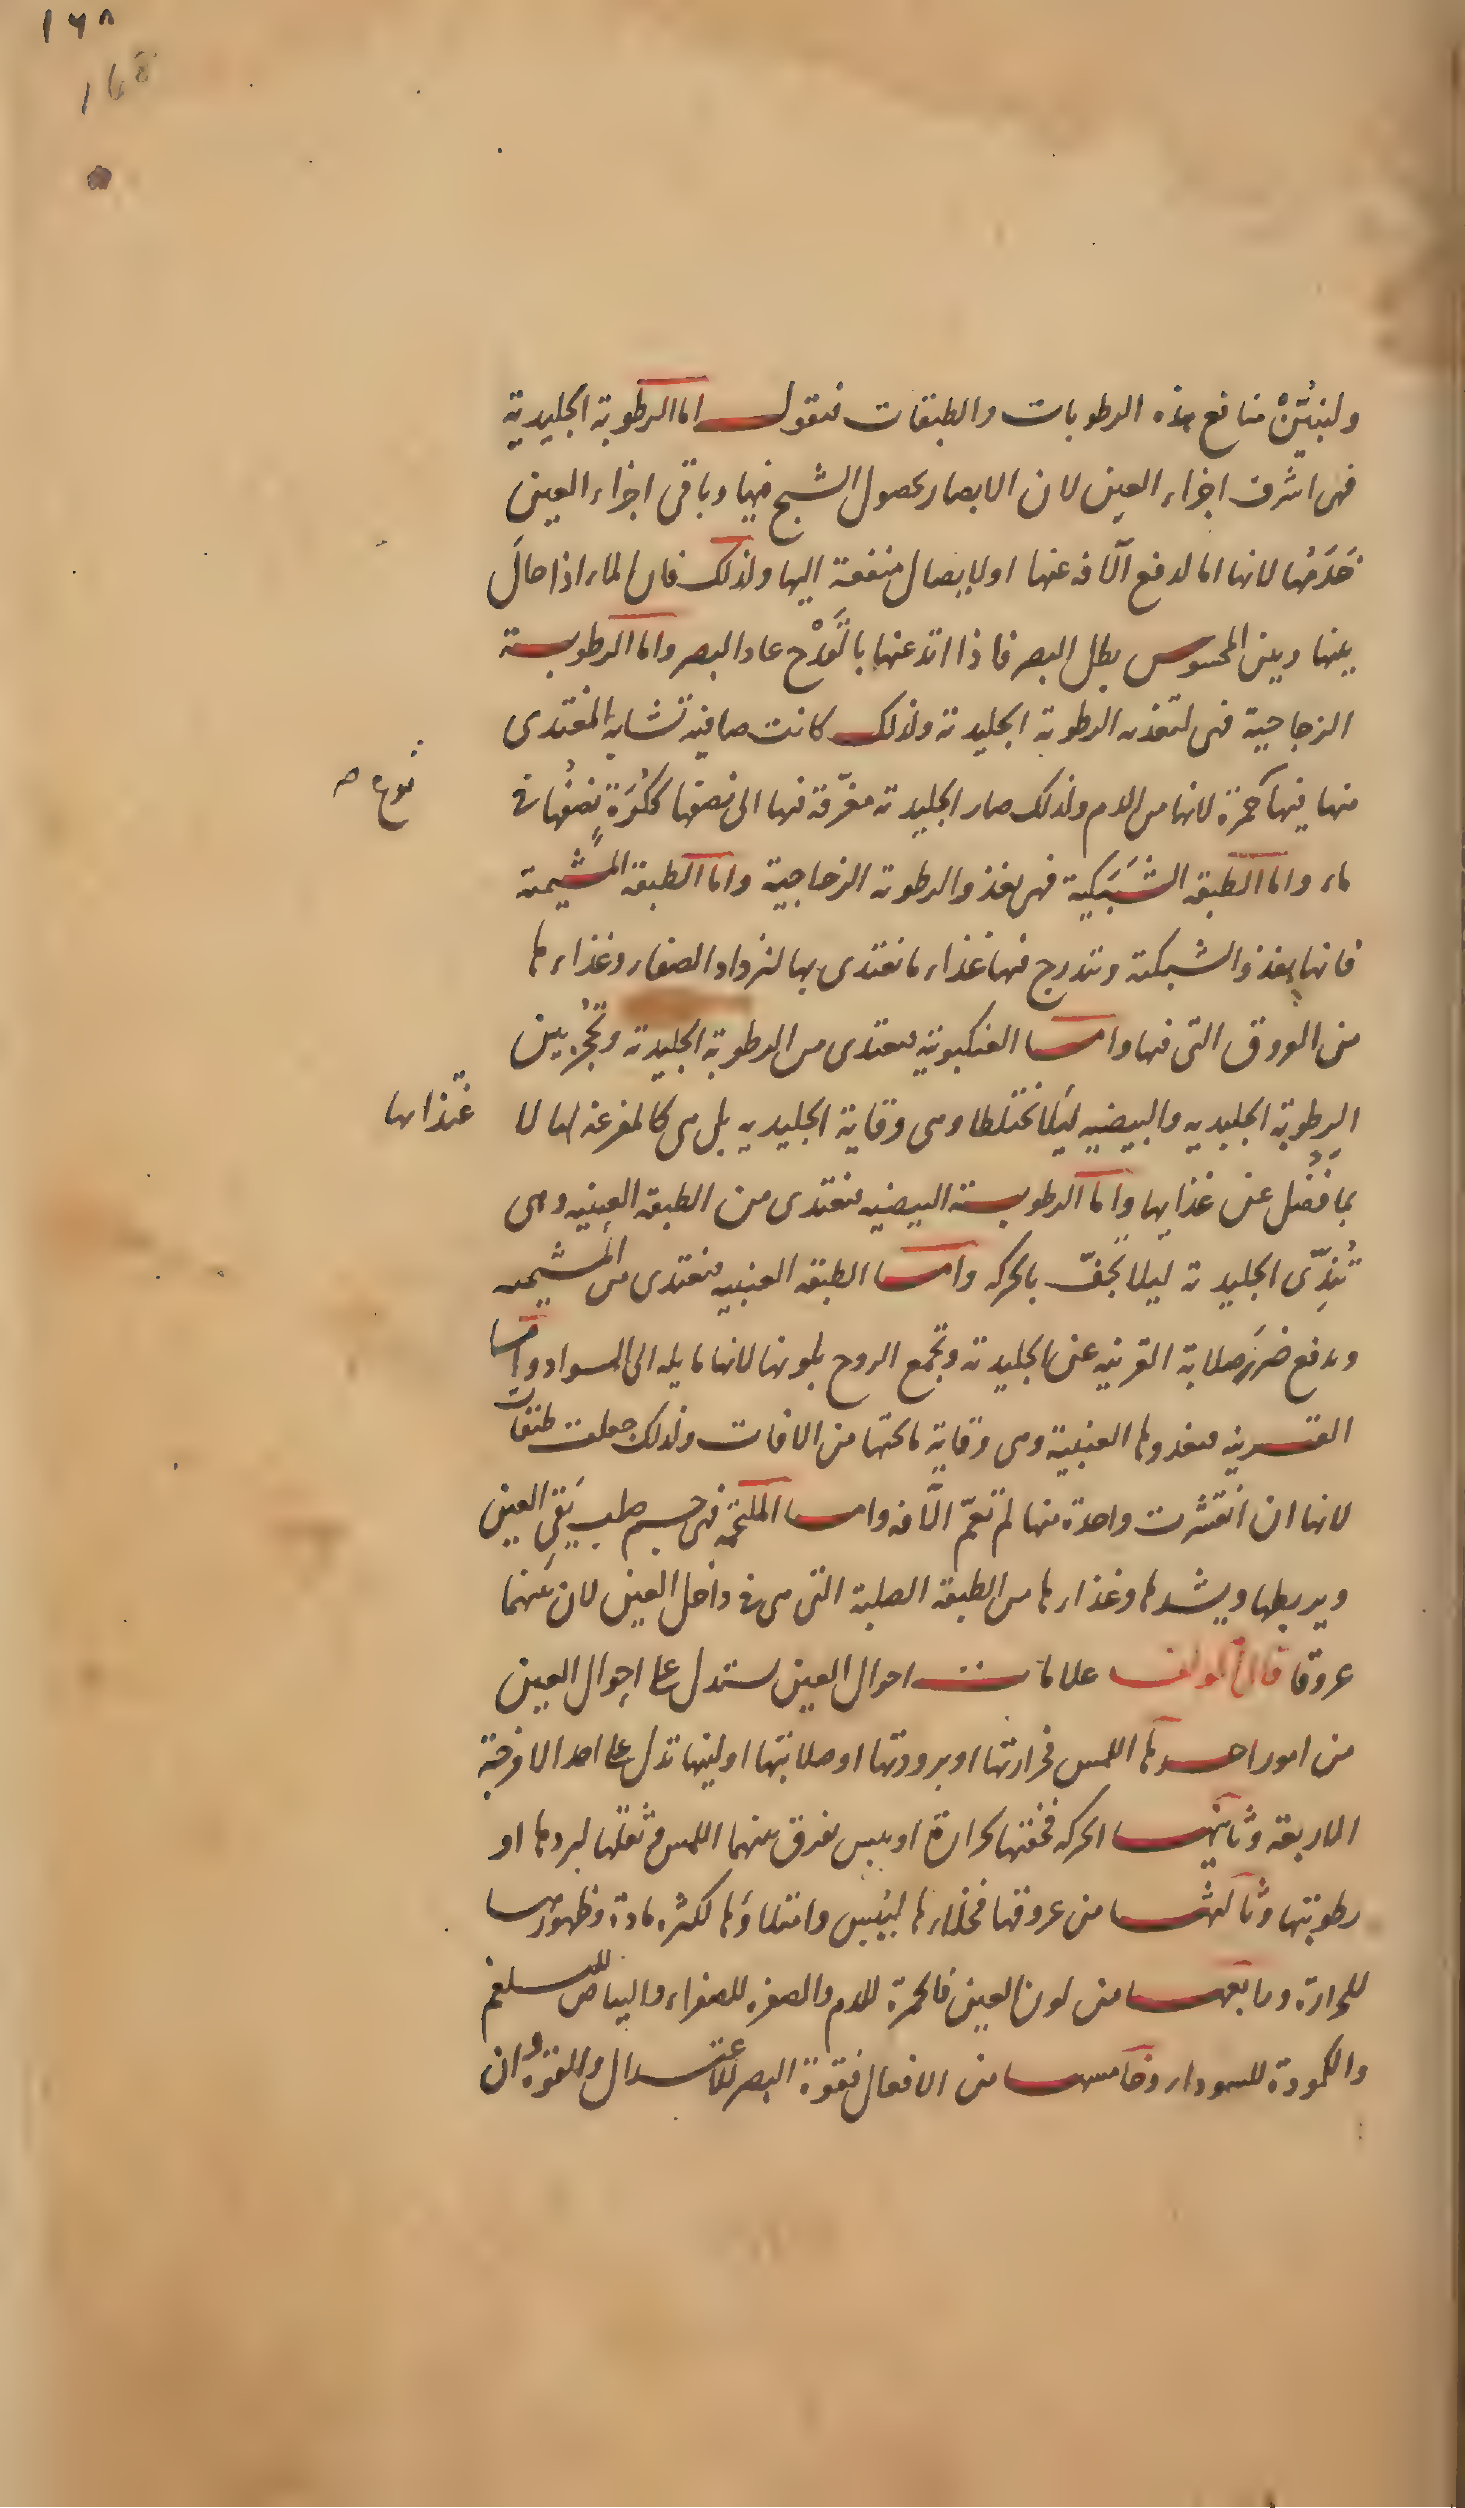 ١٦٨
168
ولنبيّن منافع هذه الرطوبات والطبقات فنقول اما الرطوبة الجليدية
فهى اشرف اجزاء العين لان الابصار بحصول الشبح فيها وباقى اجزاء العين
خَدَمُها لانها اما لدفع الآفه عنها او لايصال منفعة اليها ولذلك فان الماء اذا حالَ
بينها وبين المحسوس بطل البصر فاذا اندعنها بالقَدْح عاد البصر واما الرطوبة
الزجاجية فهى لتغذيه الرطوبة الجليدية ولذلك كانت صافية تشابه المغتدى
منها فيها حمرة لانها من الدم ولذلك صار الجليدية مغرّقة فيها الى نصفها ككُرَةٍ نصفُها فى
ماء واما الطبقة الشَبَكية فهى تغذو الرطوبة الزجاجية واما الطبقة المشيمية
فانها تغذو الشبكية وتندرج فيها غذاء ما تغتدى بها لتزداد الصفاء وغذاءها
من العروق التى فيها واما العنكبوتية فتغتدى من الرطوبة الجليدية وتحجُز بين
الرطوبة الجليديه والبيضيه ليَلا تختلطا وهى وقاية الجليديه بل هى كالمفرغة لها لا
غذايها
بما فَضُل عن غذايها واما الرطوبة البيضيه فتغتدى من الطبقة العنبيه وهى
تُنَدِّى الجليدية ليلا تجفّ بالحركه واما الطبقة العنبيه فتغتدى من المشيمية
وتدفع ضرَرَ صلابة القرنيه عن الجليدية وتجمع الروح بلونها لانها مايله الى السواد واما
القرنيه فتغذوها العنبية وهى وقاية ما تحتها من الافات ولذلك جعلت طبقات
لانها ان انقشرت واحدة منها لم تعمّ الآفه واما الملتحمة فهى جسم صلب يَقى العين
ويربطها ويشدها وغذاءها من الطبقة الصلبة التى هى فى داخل العين لان بينهما
عروقا قال المولف علامات احوال العين يستدل على احوال العين
من امور احدها اللمس فحرارتها او برودتها او صلابتها او لينها تدل على احد الامزجة
الاربعة وثانيها الحركه فخفتها لحرارة او يبس تفرق بينهما اللمس وثقلها لبردها او
رطوبتها وثالثها من عروقها فخلاءها ليُبس وامتلاؤها لكثره مادة وظهورها
للحرارة ورابعها من لون العين فالحمرة للدم والصفره للصفراء والبياض للبلغم
والكمودة للسوداء وخامسها من الافعال فقوة البصر للاعتدال والقوة وان